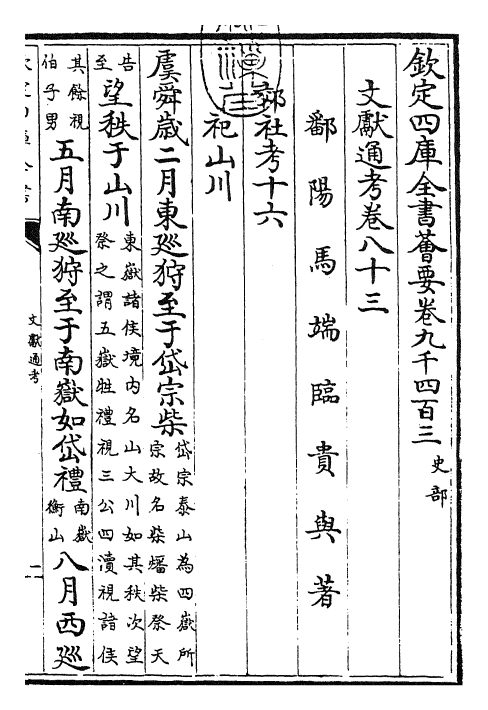 欽定四庫全書薈要卷九千四百三
史部
文獻通考卷八十三
鄱陽馬端臨貴與著
郊社考十六
祀山川
虞舜歳二月東廵狩至于岱宗柴岱宗泰山為四嶽所宗故名柴燔柴祭天
告至望秩于山川東嶽諸侯境内名山大川如其秩次望祭之謂五嶽牲禮視三公四瀆視諸侯
其餘視伯子男五月南廵狩至于南嶽如岱禮南嶽衡山八月西廵
文獻通考